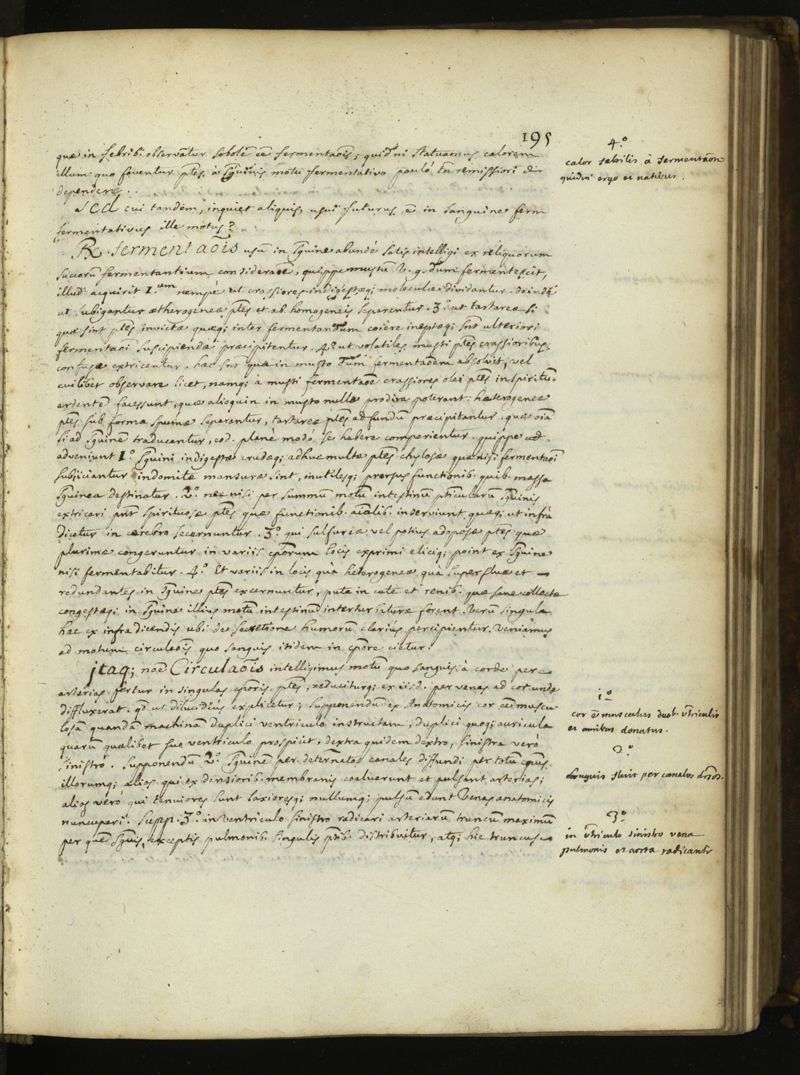 195
quæ in febrib. observatur sobole ee fermentaōis; quidni statuamus calorem
illum quo foventur ptes à sguinis motu fermentativo paulò tn remissiori
dependere.
Sed cui tandem, inquiet aliquis, usui futurus ē in sanguine
fermentativus ille motus?
℟. fermentaōis usū in sguine abundè satis intelligi ex reliquorum
succorū fermentantium consideraōe, quippe mustū v. g. dum fermentescit,
illud acquirit 1.um nempè ut crassiores indigestæq; moleculæ dividantur.
ut subigantur ætherogeneæ ptes et ab homogeneis separentur. 3. ut tartareæ si
quæ sint ptes invictæ quæq; inter fermentandum coiere ineptæq; snt ulteriori
fermentaōi suscipiendæ præcipitentur. 4.o ut volatiles musti ptes crassioribus
confusæ extricentur. hæc snt quæ in musto dum fermentaōem absolvit, vel
cuilibet observare licet, namq; à musti fermentaōe crassiores olei ptes in spiritū
ardentē facessunt, quæ alioquin in musto nullæ prodire poterant: hæterogeneæ
ptes sub forma spumæ separantur, tartareæ ptes ad fundū præcipitantur. quæ oīa
si ad sguinē traducantur, eod. planè modo se habere comperientur. quippe
adveniunt 1.o sguini indigestæ crudæq; adhuc multæ ptes chylosæ quæ nisi fermentaōi
subjiciantur indomitæ mansuræ sint, inutilesq; prorsus functionib. quib. massa
sguinea destinatur. 2.o nec nisi per summū motū intestinū pticularū sguinis
extricari pnt spirituosæ ptes quæ functionib. aalib. inserviunt, quæq; ut infrà
dicetur in cerebro secernuntur. 3.o qui sulfureæ vel potius adiposæ ptes quæ
plurimæ congeruntur in variis cporum locis exprimi eliciq; point ex sguine
nisi fermentabitur. 4.o Et variis in locis quà heterogeneæ quà superfluæ et
redundantes in sguine ptes excernuntur, puta in cute et renib. quæ sane collectæ
congestæq; in sguine illius motū intestinū interturbaturæ forent. Verū singula
hæc ex infra dicendis ubi de secretione humorū clarius percipientur, veniamus
ad motum circulaōis quo sanguis itidem in cpore cietur.
Itaq; nōe Circulaōis intelligimus motū quo sanguis à corde per
arterias fertur in singulas cporis ptes, reduciturq; ex iisd. per venas ad cor unde
diffluxerat. qd ut dilucidius explicetur; supponendū ex Anatomicis cor ēē muscu
losā quandā machinā duplici ventriculo instructam, duplici quoq; auricula
quarū quælibet suo ventriculo prospicit, dextra quidem dextro, sinistra verò
sinistro. Supponendū 2.o sguinē per determatos canales diffundi per totū cpus
illorumq; alios qui ex densiorib. membranis coaluerunt et pulsant arterias;
alios vero qui tenuiores sunt laxioresq; nullumq; pulsū edunt Venas anatomicis
nuncupari. Supp. 3.o in ventriculo sinistro radicari arteriarū truncū maximū
per quē sguis, exceptis pulmonib. singulis ptib. distribuitur, atq; hic truncus
4.o
calor febrilis à fermentaōne
quidni ergo et nativus.
1.o
cor ē musculus dupl. vtriculo
et auribus donatus.
2.o
sanguis fluit per canales
3.o
in vtriculo sinistro vena
pulmonis et aorta radicantr